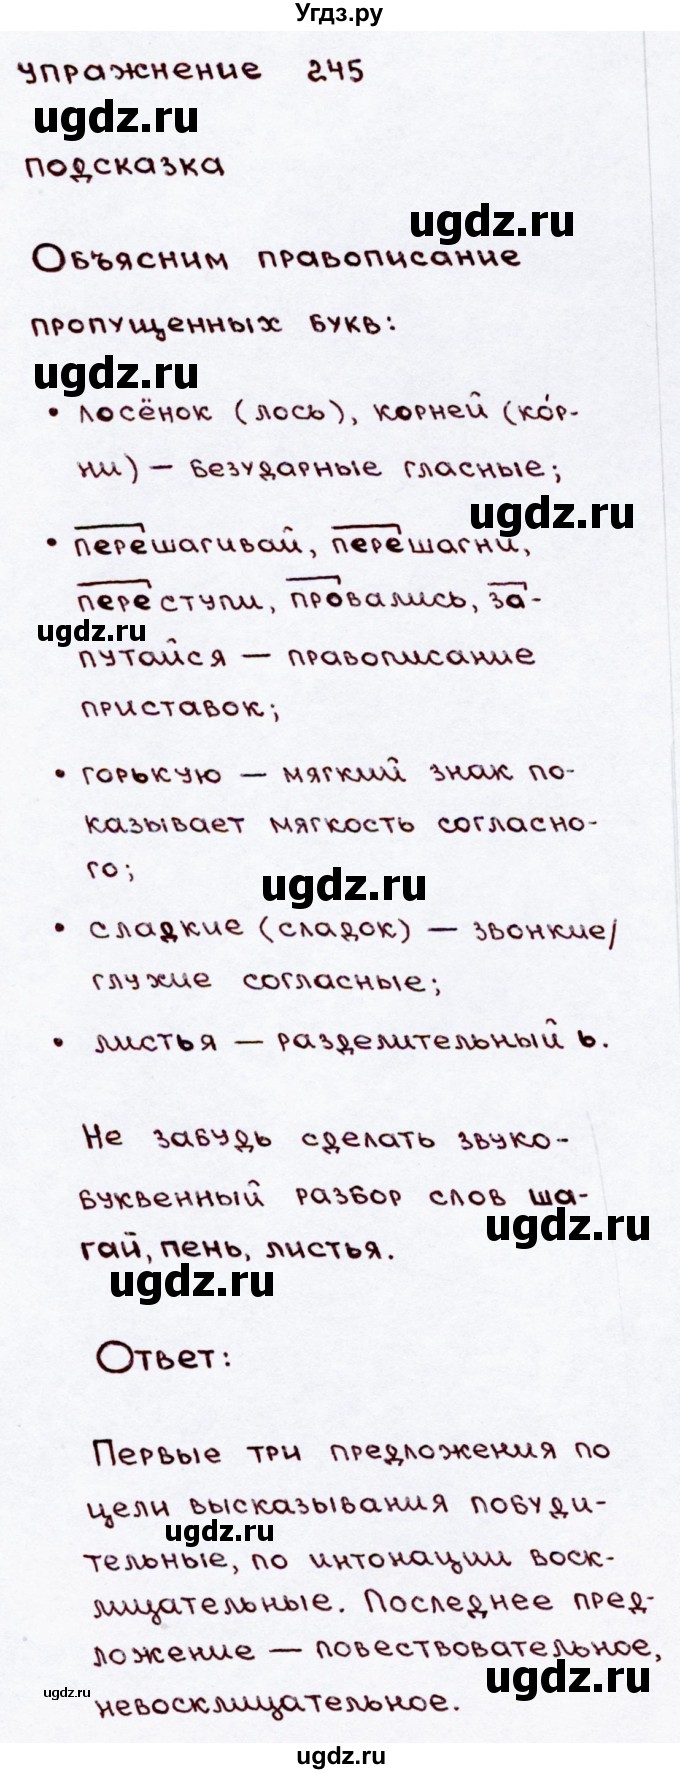 Угдз.ру
упражнение 245
ugdz.ru
подсказка
ugdz.ru
Объясним правописание
пропущенных букв:
ugdz.ru
• лосёнок (лось), корней (ко́р-
ни) — безударные гласные;
ugdz.ru
• перешагивай, перешагни,
переступи, провались, за-
ugdz.ru
путайся — правописание
приставок;
• горькую — мягкий знак по-
казывает мягкость согласно-
го;
ugdz.ru
• сладкие (сладок) — звонкие/
глухие согласные;
• листья — разделительный ь.
Не забудь сделать звуко-
буквенный разбор слов ша-
ugdz.ru
гай, пень, листья.
ugdz.ru
Ответ:
Первые три предложения по
цели высказывания побуди-
ugdz.ru
тельные, по интонации воск-
лицательные. Последнее пред-
ложение — повествовательное,
ugdz.ru
ugdz.ru
невосклицательное.
ugdz.ru